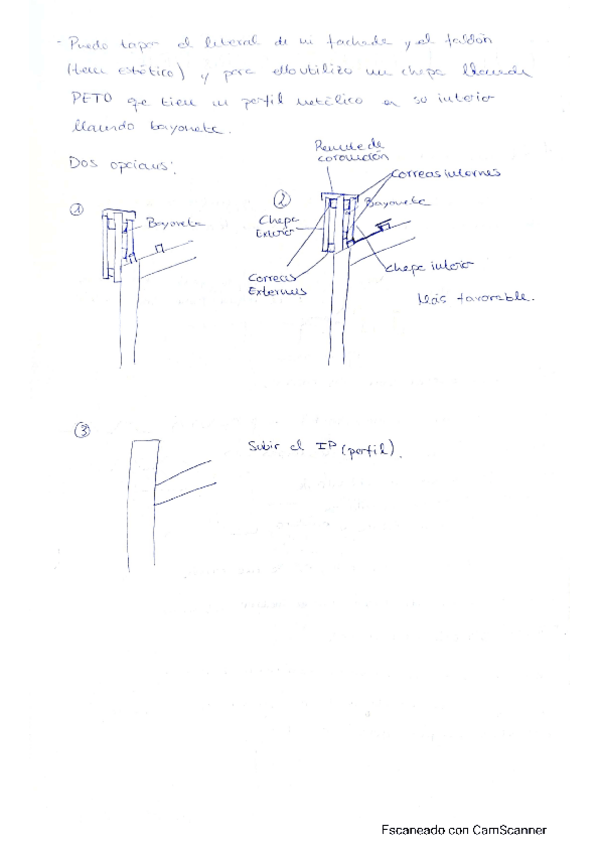 - Puedo tapar el lateral de mi fachada y el faldón
(tema estético) y para ello utilizo una chapa llamada
PETO que tiene un perfil metálico en su interior
llamado bayoneta.
Dos opciones:
Remate de
coronación
①
Bayoneta
②
Correas internas
Bayoneta
Chapa
Exterior
Chapa interior
Correas
Externas
Más favorable.
③
Subir el IP (perfil).
Escaneado con CamScanner